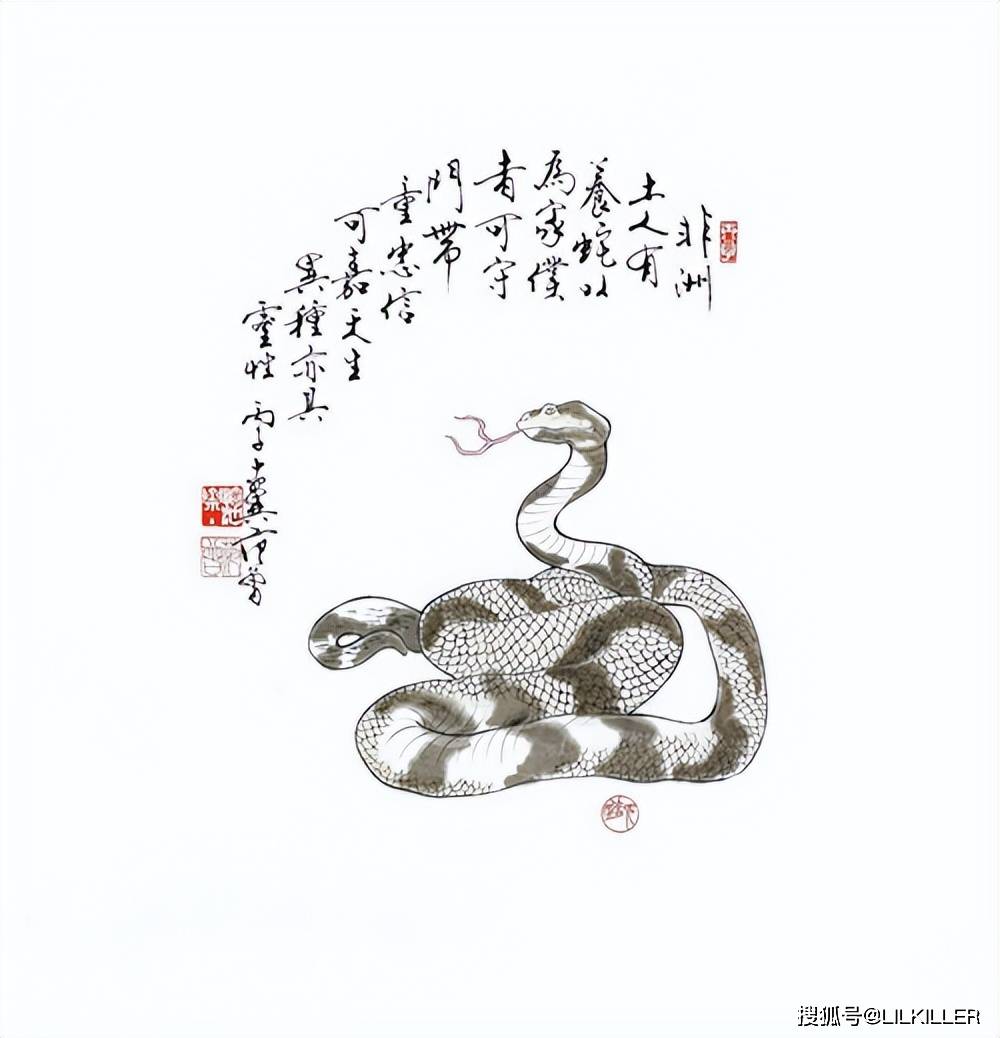 非洲
土人有
養蛇以
為家僕
者可守
門帶
重忠信
可嘉天生
異種亦具
靈性 丙子 十翼范曾
搜狐号@LILKILLER